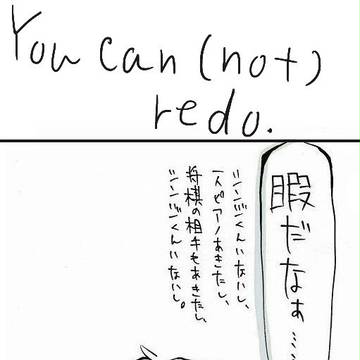 You can (not)
redo.
暇だなぁ…
シンジくんいないし、
一人ピアノあきたし、
将棋の相手もあきたし、
シンジくんいないし。